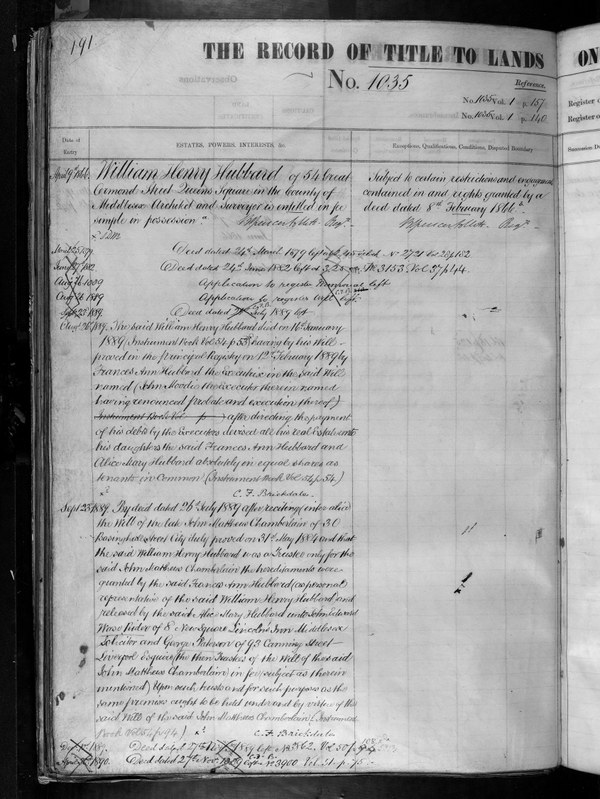 191
THE RECORD OF TITLE TO LANDS
No. 1035
Reference.
No. 1035 Vol. 1 p. 157
No. 1036 Vol. 1 p. 140
Date of Entry
ESTATES, POWERS, INTERESTS, &c.
Exceptions, Qualifications, Conditions, Disputed Boundary
William Henry Hubbard of 54 Great
Ormond Street Queens Square in the County of
Middlesex Architect and Surveyor is entitled in fee
simple in possession.
Subject to certain restrictions and engagements
contained in and rights granted by a
deed dated 8th February 1866
Deed dated 24th March 1879 No 2721 Vol 28 p 152
Deed dated 24th June 1882 left at No 3153 Vol 37 p 44
Application to register left
Application to register left
Deed dated July 1889 left
Augt 26 1889. The said William Henry Hubbard died on 16th January
1889 (Instrument Book Vol 54 p 53) having by his Will
proved in the Principal Registry on 12th February 1889 by
Frances Ann Hubbard the Executrix in the said Will
named (John Moodie the Executor therein named
having renounced Probate and execution thereof)
Instrument Book Vol p ) after directing the payment
of his debts by the Executors devised all his real Estate unto
his daughters the said Frances Ann Hubbard and
Alice Mary Hubbard absolutely in equal shares as
tenants in Common (Instrument Book Vol 54 p 54.)
C. F. Brickdale.
Sept 23 1889. By deed dated 26th July 1889 after reciting inter alia
the Will of the late John Matthew Chamberlain of 30
Basinghall Street City duly proved on 31st May 1884 and that
the said William Henry Hubbard was a Trustee only for the
said John Matthew Chamberlain the hereditaments were
granted by the said Frances Ann Hubbard (as personal
representative of the said William Henry Hubbard) and
released by the said Alice Mary Hubbard unto John Edward
Rider of 8 New Square Lincolns Inn Middlesex
Solicitor and George Paterson of 93 Canning Street
Liverpool Esquire (the then Trustees of the Will of the said
John Matthew Chamberlain) in fee (subject as therein
mentioned) Upon such trusts and for such purposes as the
same premises ought to be held under and by virtue of the
said Will of the said John Matthew Chamberlain (Instrument
Book Vol 54 p 94)
C. F. Brickdale
1889. Deed dated 27th 1889 left No 3862. Vol 50 p
1890. Deed dated 27th Nov. 1889 left No 3900. Vol. 51 p. 75
ON
Register of
Register of
Succession D